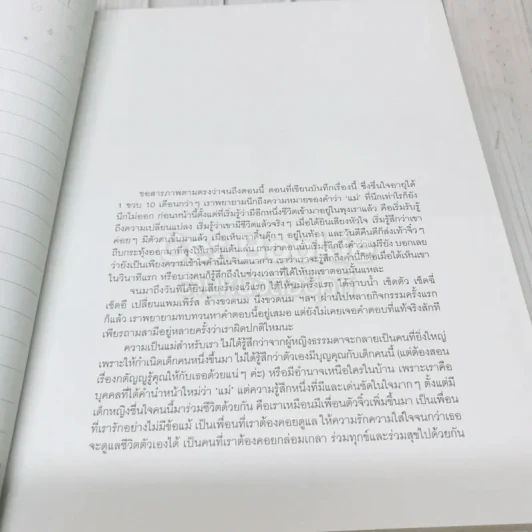 ขอสารภาพตามตรงว่าจนถึงตอนนี้ ตอนที่เขียนบันทึกเรื่องนี้ ซึ่งชื่นใจอายุได้
1 ขวบ 10 เดือนกว่าๆ เราพยายามนึกถึงความหมายของคำว่า 'แม่' ที่นึกเท่าไรก็ยัง
นึกไม่ออก ก่อนหน้านี้ตั้งแต่ที่เริ่มรู้ว่ามีอีกหนึ่งชีวิตเข้ามาอยู่ในพุงเราแล้ว คือเริ่มรับรู้
ถึงความเปลี่ยนแปลง เริ่มรู้ว่าเขามีชีวิตแล้วจริงๆ เมื่อได้ยินเสียงหัวใจ เริ่มรู้สึกว่าเขา
ค่อยๆ มีตัวตนขึ้นมาแล้ว เมื่อเห็นเขาดิ้นดุ๊กๆ อยู่ในท้อง และวันดีคืนดีก็ส่งเท้าจิ๋วๆ
ถีบกระทุ้งออกมาที่พุงให้เราตื่นเต้นเล่น ถามว่าตอนนั้นเริ่มรู้สึกถึงคำว่าแม่รึยัง บอกเลย
ว่ายังเป็นเพียงความเข้าใจคำนี้ในจินตนาการ เพราะเราจะรู้สึกถึงคำนี้ก็ต่อเมื่อได้เห็นเขา
ในวินาทีแรก หรือบางคนก็รู้สึกถึงในช่วงเวลาที่ได้ให้นมเขาตอนนั้นแหละ
จนมาถึงวันที่ได้ยินเสียงร้องแว้แรก ได้ให้นมครั้งแรก ได้อาบน้ำ เช็ดตัว เช็ดฉี่
เช็ดอึ เปลี่ยนแพมเพิร์ส ล้างขวดนม นึ่งขวดนม ฯลฯ ผ่านไปหลายกิจกรรมครั้งแรก
ก็แล้ว เราพยายามทบทวนหาคำตอบนี้อยู่เสมอ แต่ยังไม่เคยเจอคำตอบที่แท้จริงสักที
เพียรถามสามีอยู่หลายครั้งว่าเราผิดปกติไหมนะ
ความเป็นแม่สำหรับเรา ไม่ได้รู้สึกว่าจากผู้หญิงธรรมดาจะกลายเป็นคนที่ยิ่งใหญ่
เพราะให้กำเนิดเด็กคนหนึ่งขึ้นมา ไม่ได้รู้สึกว่าตัวเองมีบุญคุณกับเด็กคนนี้ (แต่ต้องสอน
เรื่องกตัญญูรู้คุณให้กับเธอด้วยแน่ๆ ค่ะ) หรือมีอำนาจเหนือใครในบ้าน เพราะเราคือ
บุคคลที่ได้ตำแหน่งหน้าใหม่ว่า 'แม่' แต่ความรู้สึกหนึ่งที่มีและเด่นชัดในใจมากๆ ตั้งแต่มี
เด็กหญิงชื่นใจคนนี้มาร่วมชีวิตด้วยกัน คือเราเหมือนมีเพื่อนตัวจิ๋วเพิ่มขึ้นมา เป็นเพื่อน
ที่เรารักอย่างไม่มีข้อแม้ เป็นเพื่อนที่เราต้องคอยดูแล ให้ความรักความใส่ใจจนกว่าเธอ
จะดูแลชีวิตตัวเองได้ เป็นคนที่เราต้องคอยกล่อมเกลา ร่วมทุกข์และร่วมสุขไปด้วยกัน